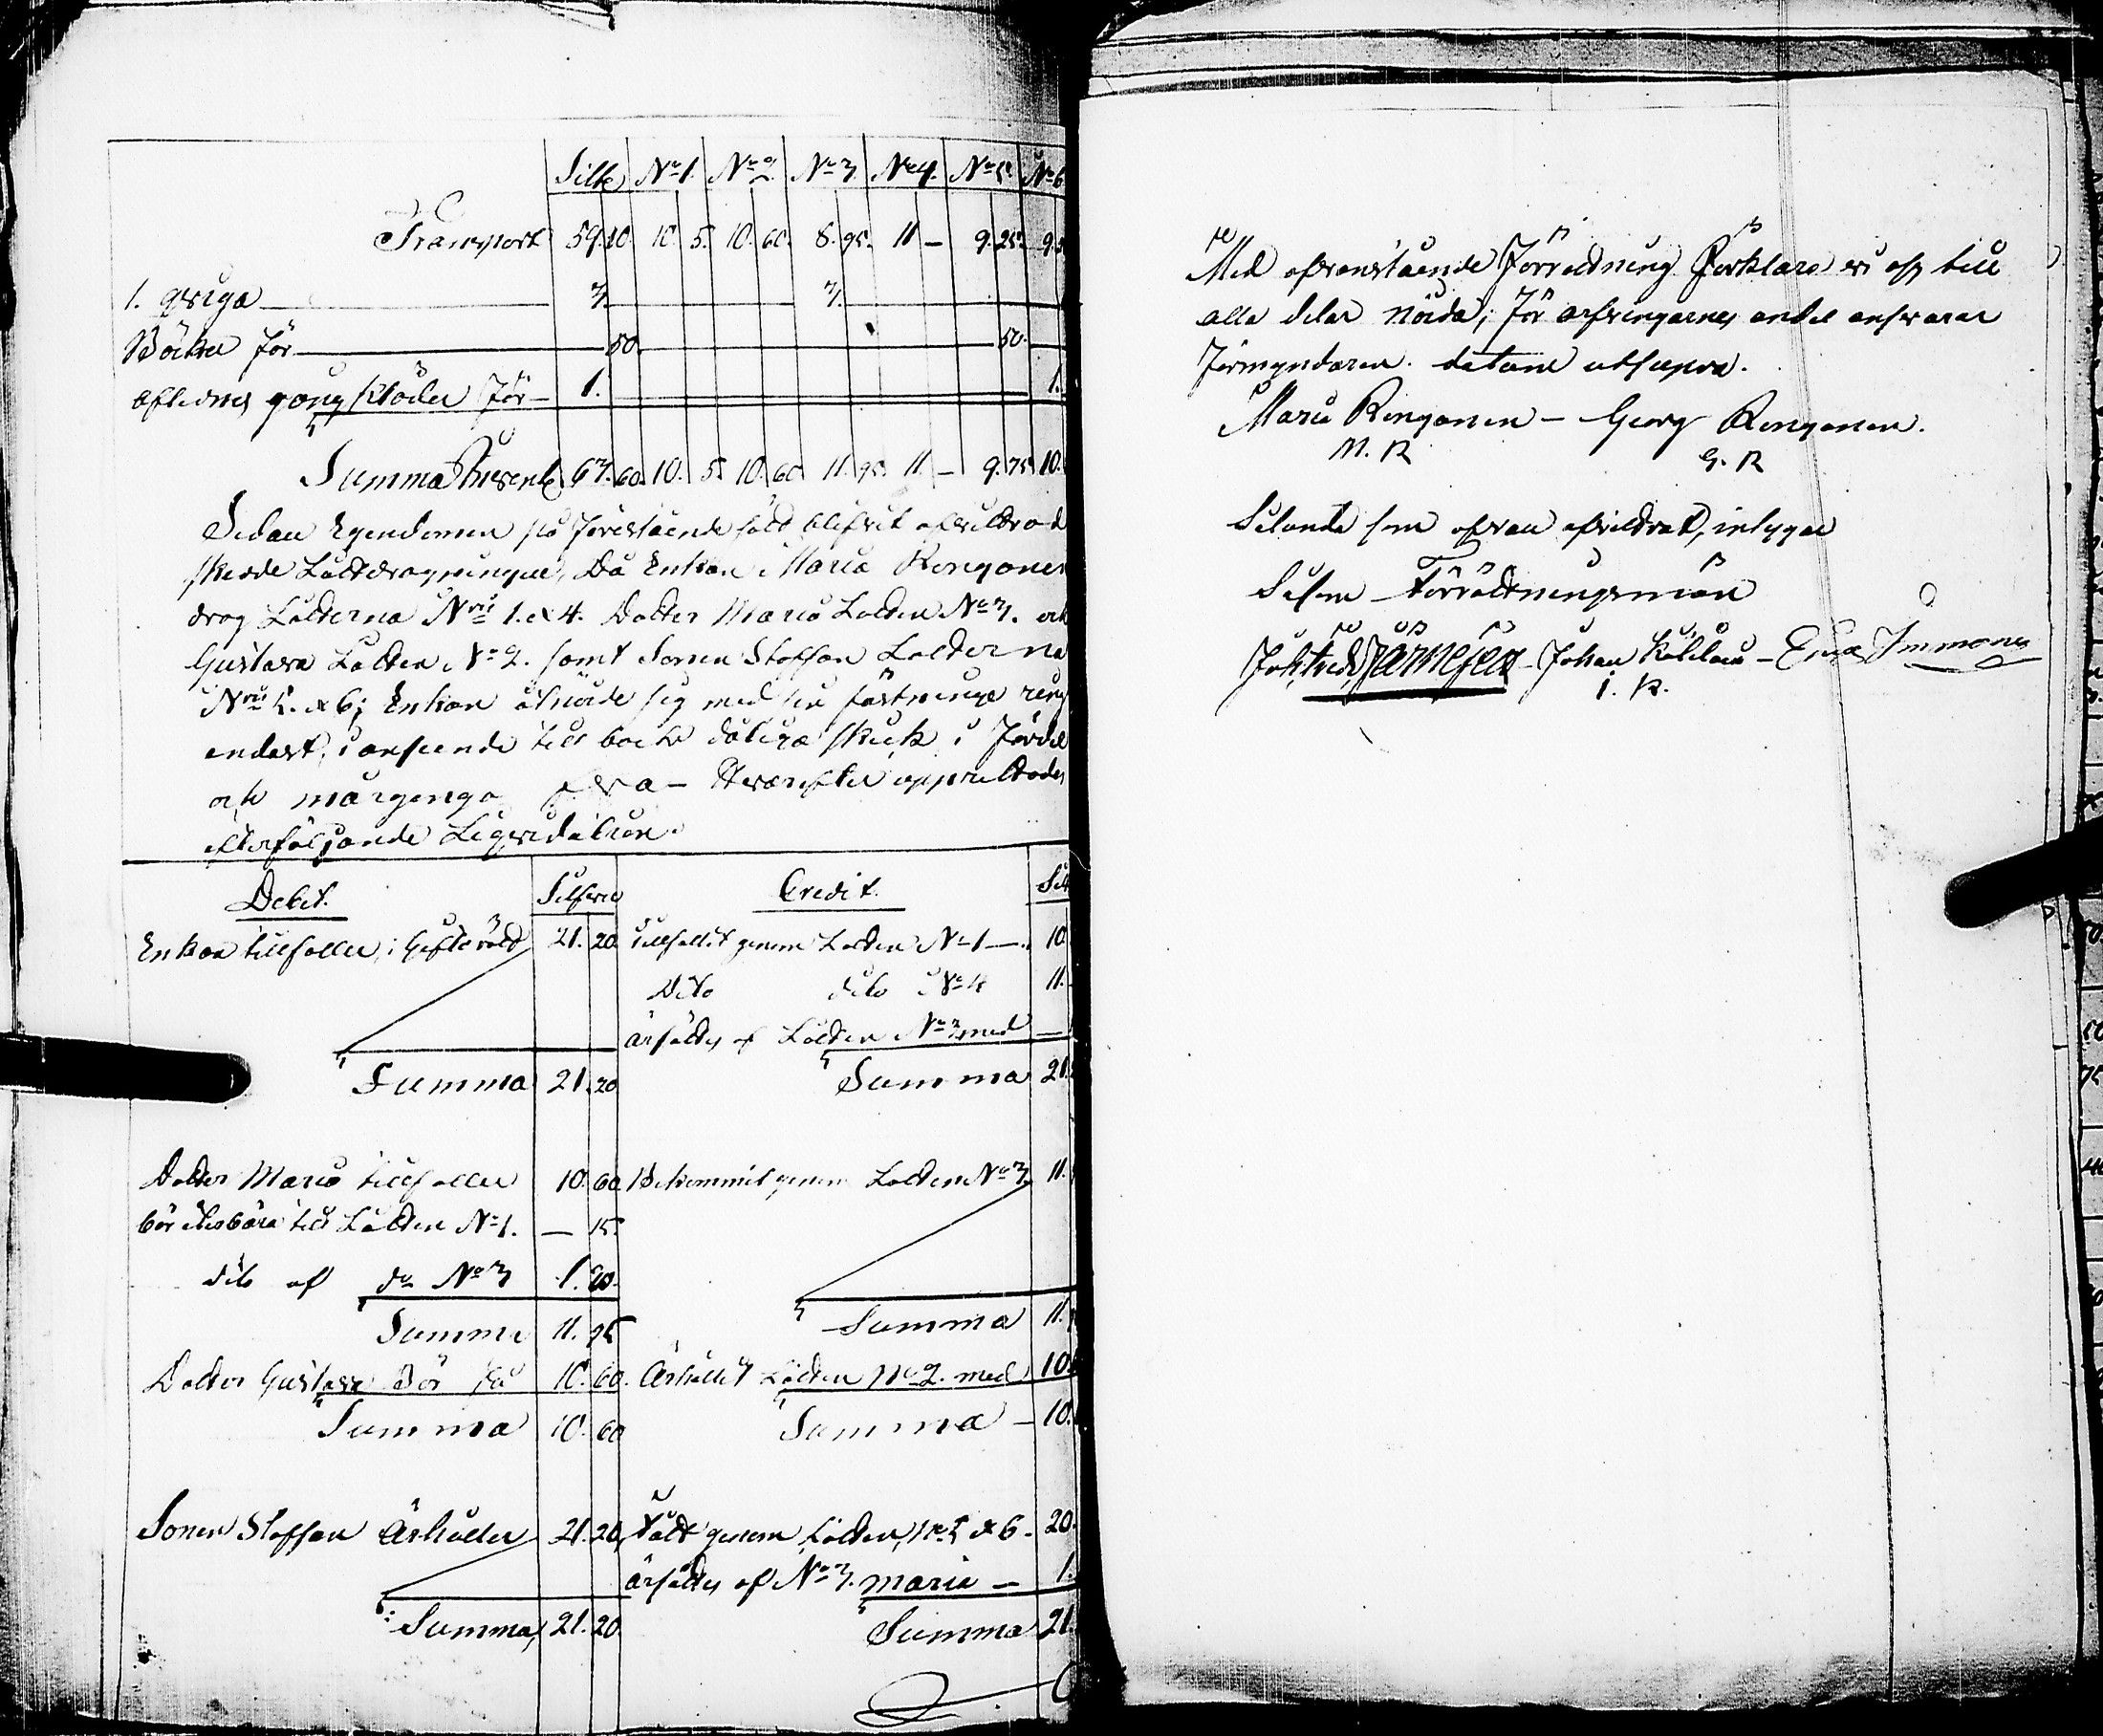 Silfv. No 1. No 2. No 3. No 4. No 5. No 6
Transport 59. 10. 10. 5. 10. 60. 8. 95. 11 — 9. 25. 9.
1. qviga 3. 3.
Böcker för 50. 50.
aflednes gång kläder för 1. 1.
Summa 63. 60. 10. 5. 10. 60. 11. 95. 11. — 9. 75. 10.
Sedan Egendomen på förestående sätt blifvit afvittrad
skedde Lottdragningen, Då Enkan Maria Rongonen
drog Lotterna Nris 1. & 4. Dotter Maria Lotten No 3. och
Gustava Lotten No 2. samt Sonen Staffan Lotterna
Nris 5. & 6; Enkan åtnöjde sig med sin fästninge ring
endast, i anseende till boets dåliga skick i fördel
och morgongåfva — Hvarefter upprättades
efterföljande Liqvidation.
Debet. Silfver Credit. Silf
Enkan tillfaller i Giftorätt 21. 20. Tillfallit genom Lotten No 1 — 10.
Dito dito No 4 11.
ersättes af Lotten No 3 med —
Summa 21. 20 Summa 21.
Dotter Maria tillfaller 10. 60. Bekommit genom Lotten No 3 11.
bör utbära till Lotten No 1. — 15.
dito af do No 3 1. 20.
Summa 11. 95 Summa 11.
Dotter Gustava Bör få 10. 60. Erhållit Lotten No 2. med 10.
Summa 10. 60 Summa — 10.
Sonen Staffan Erhåller 21. 20. Fått genom Lotten No 5 & 6 - 20.
ersättes af No 3. Maria — 1.
Summa, 21. 20. Summa 21.
Med ofvanstående Förrättning Förklara vi oss till
alla delar nöida; för arfvingarnes andel ansvarar
Förmyndaren. datum utsupra.
Maria Rongonen — Georg Rongonen.
M. R G. R
Sålunda som ofvan afvittrat, intygar
Såsom Förrättningsmän
Joh: Fred: Järnefelt Johan — Immonen
I. K.